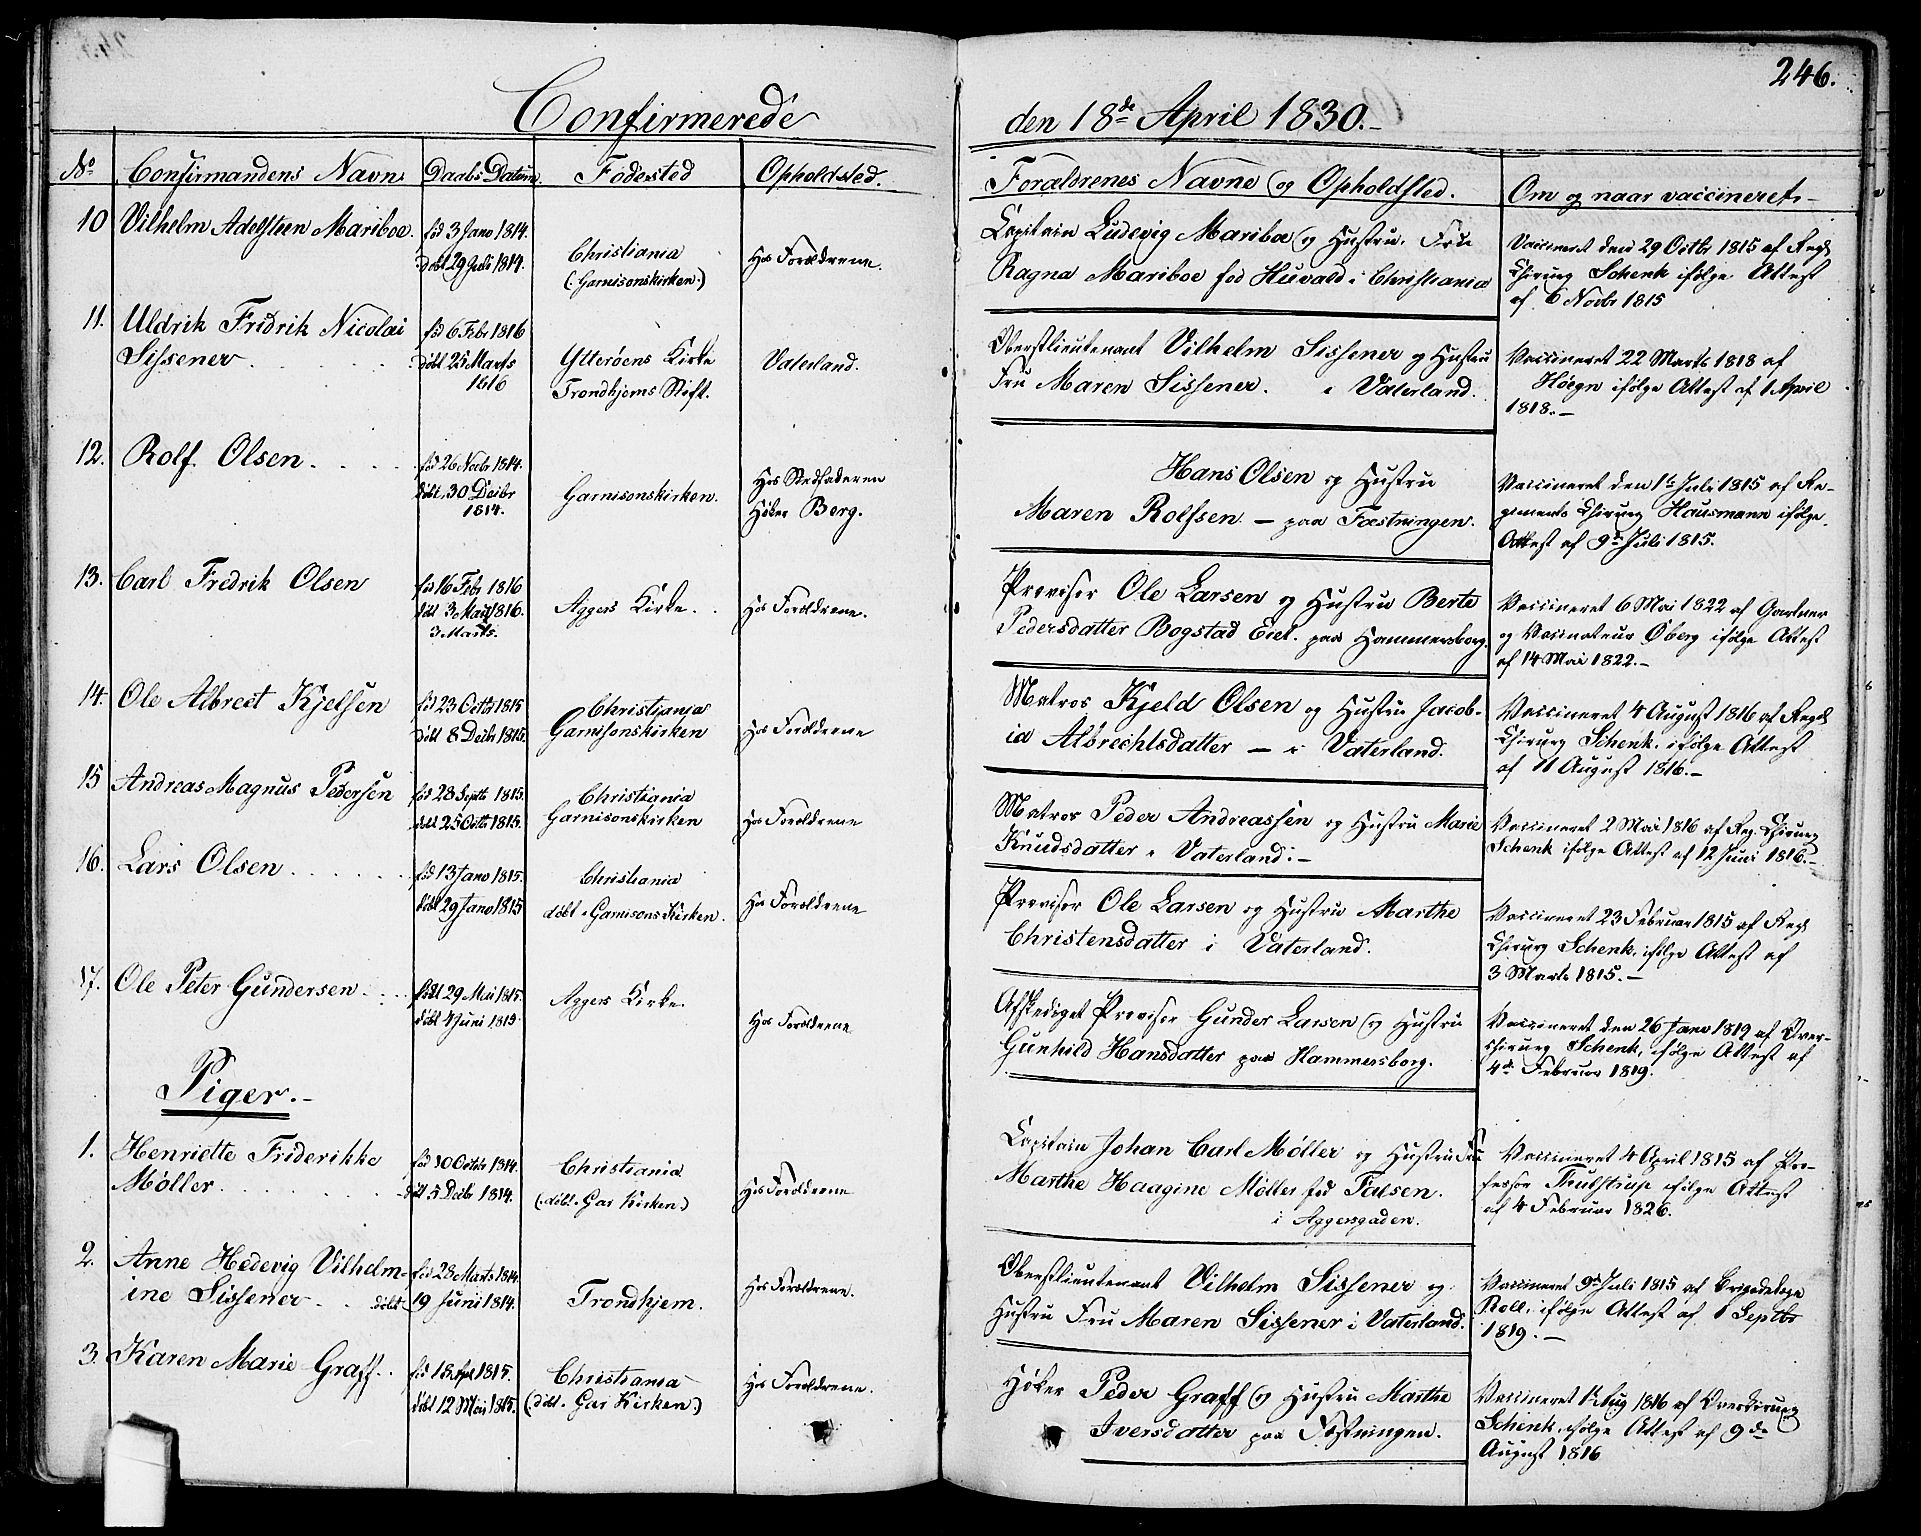 246.
Confirmerede den 18de April 1830.-
No. Confirmandens Navn Daabs Datum. Födested Opholdsted. Forældrenes Navne og Opholdsted. Om og naar vaccineret.-
10 Vilhelm Adelsteen Mariboe.
föd 3 Jano 1814.
döbt 29 Juli 1814.
Christiania
(: Garnisonskirken :)
Hos Forældrene.
Capitain Ludevig Mariboe og Hustru, Frue
Ragna Mariboe föd Huvald i Christiania
Vaccineret den 29 Octbr 1815 af Regts
Chirurg Schenk ifölge Attest
af 6 Novbr 1815
11. Uldrik Fridrik Nicolai
Sissener
föd 6 Febr 1816
döbt 25 Marts
1816
Ytteröens Kirke
Trondhjems Stift.
Vaterland.
Oberstlieutenant Vilhelm Sissener og Hustru
Fru Maren Sissener. i Vaterland.
Vaccineret 22 Marts 1818 af
Höegn ifölge Attest af 1 April
1818.-
12. Rolf Olsen
föd 26 Novbr 1814.
döbt 30 Decbr
1814.
Garnisonskirken.
Hos Stedfaderen
Höker Berg.
Hans Olsen og Hustru
Maren Rolfsen - paa Fæstningen.
Vaccineret den 1te Juli 1815 af Re-
giments Chirurg Hausmann ifölge
Attest af 9de Juli 1815.
13. Carl Fredrik Olsen
föd 16 Febr 1816
döbt 3 Mai 1816.
3 Marts.
Aggers Kirke.
Hos Forældrene.
Provisor Ole Larsen og Hustru Berte
Pedersdatter Bogstad Eiet. paa Hammersborg.
Vaccineret 6 Mai 1822 af Gartner
og Vaccinateur Öberg ifölge Attest
af 14 Mai 1822.-
14. Ole Albrect Kjelsen
föd 23 Octbr 1815
döbt 8 Decbr 1815.
Christiania
Garnisonskirken
Hos Forældrene
Matros Kjeld Olsen og Hustru Jacob-
ia Albrechtsdatter - i Vaterland.
Vaccineret 4 August 1816 af Regts
Chirurg Schenk, ifölge Attest
af 11 August 1816.-
15 Andreas Magnus Pedersen
föd 28 Septbr 1815.
döbt 25 Octbr 1815.
Christiania
Garnisonskirken
Hos Forældrene
Matros Peder Andreassen og Hustru Marie
Knudsdatter i Vaterland.-
Vaccineret 2 Mai 1816 af Reg. Chirurg
Schenk ifölge Attest af 12 Juni 1816.-
16. Lars Olsen
föd 13 Jano 1815.
döbt 29 Jano 1815
Christiania
döbt i Garnisons Kirken.
Hos Forældrene
Provisor Ole Larsen og Hustru Marthe
Christensdatter i Vaterland.
Vaccineret 23 Februar 1815 af Regts
Chirurg Schenk, ifölge Attest af
3 Marts 1815.-
17. Ole Peter Gundersen
födt 29 Mai 1815.
döbt 4 Juni 1815.
Aggers Kirke.
Hos Forældrene
Afskediget Provisor Gunder Larsen og Hustru
Gunhild Hansdatter paa Hammersborg.
Vaccineret den 26 Jano 1819 af Over-
chirurg Schenk, ifölge Attest af
4de Februar 1819.
Piger.-
1. Henriette Friderikke
Möller
föd 10 Octbr 1814.
döbt 5 Decbr 1814.
Christiania
(: döbt i Gar Kirken :)
Hos Forældrene
Capitain Johan Carl Möller og Hustru Fru
Marthe Haagine Möller föd Falsen.
i Aggersgaden.
Vaccineret 4 April 1815 af Pro-
fessor Thulstrup ifölge Attest
af 4 Februar 1826.
2. Anne Hedevig Vilhelm-
ine Sissener
föd 28 Marts 1814.
döbt 19 Juni 1814.
Trondhjem.
Hos Forældrene.
Oberstlieutenant Vilhelm Sissener og
Hustru Fru Maren Sissener i Vaterland.
Vaccineret 9de Juli 1815 af Brigadelæge
Roll, ifölge Attest af 1 Septbr
1819.-
3. Karen Marie Graff
föd 18 Apl 1815.
döbt 12 Mai 1815.
Christiania
(: döbt i Gar Kirken :)
Hos Forældrene.
Höker Peder Graff og Hustru Marthe
Iversdatter paa Fæstningen.
Vaccineret Aug 1816 af Overchirurg
Schenk, ifölge Attest af 9de
August 1816